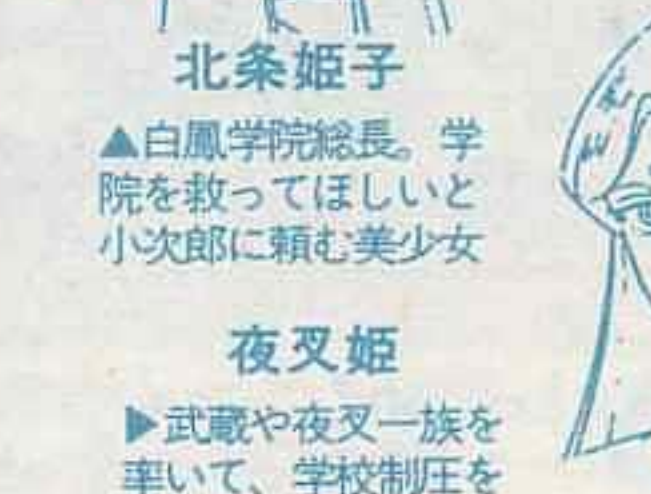 北条姫子
▲白鳳学院総長。学
院を救ってほしいと
小次郎に頼む美少女
夜叉姫
▶武蔵や夜叉一族を
率いて、学校制圧を